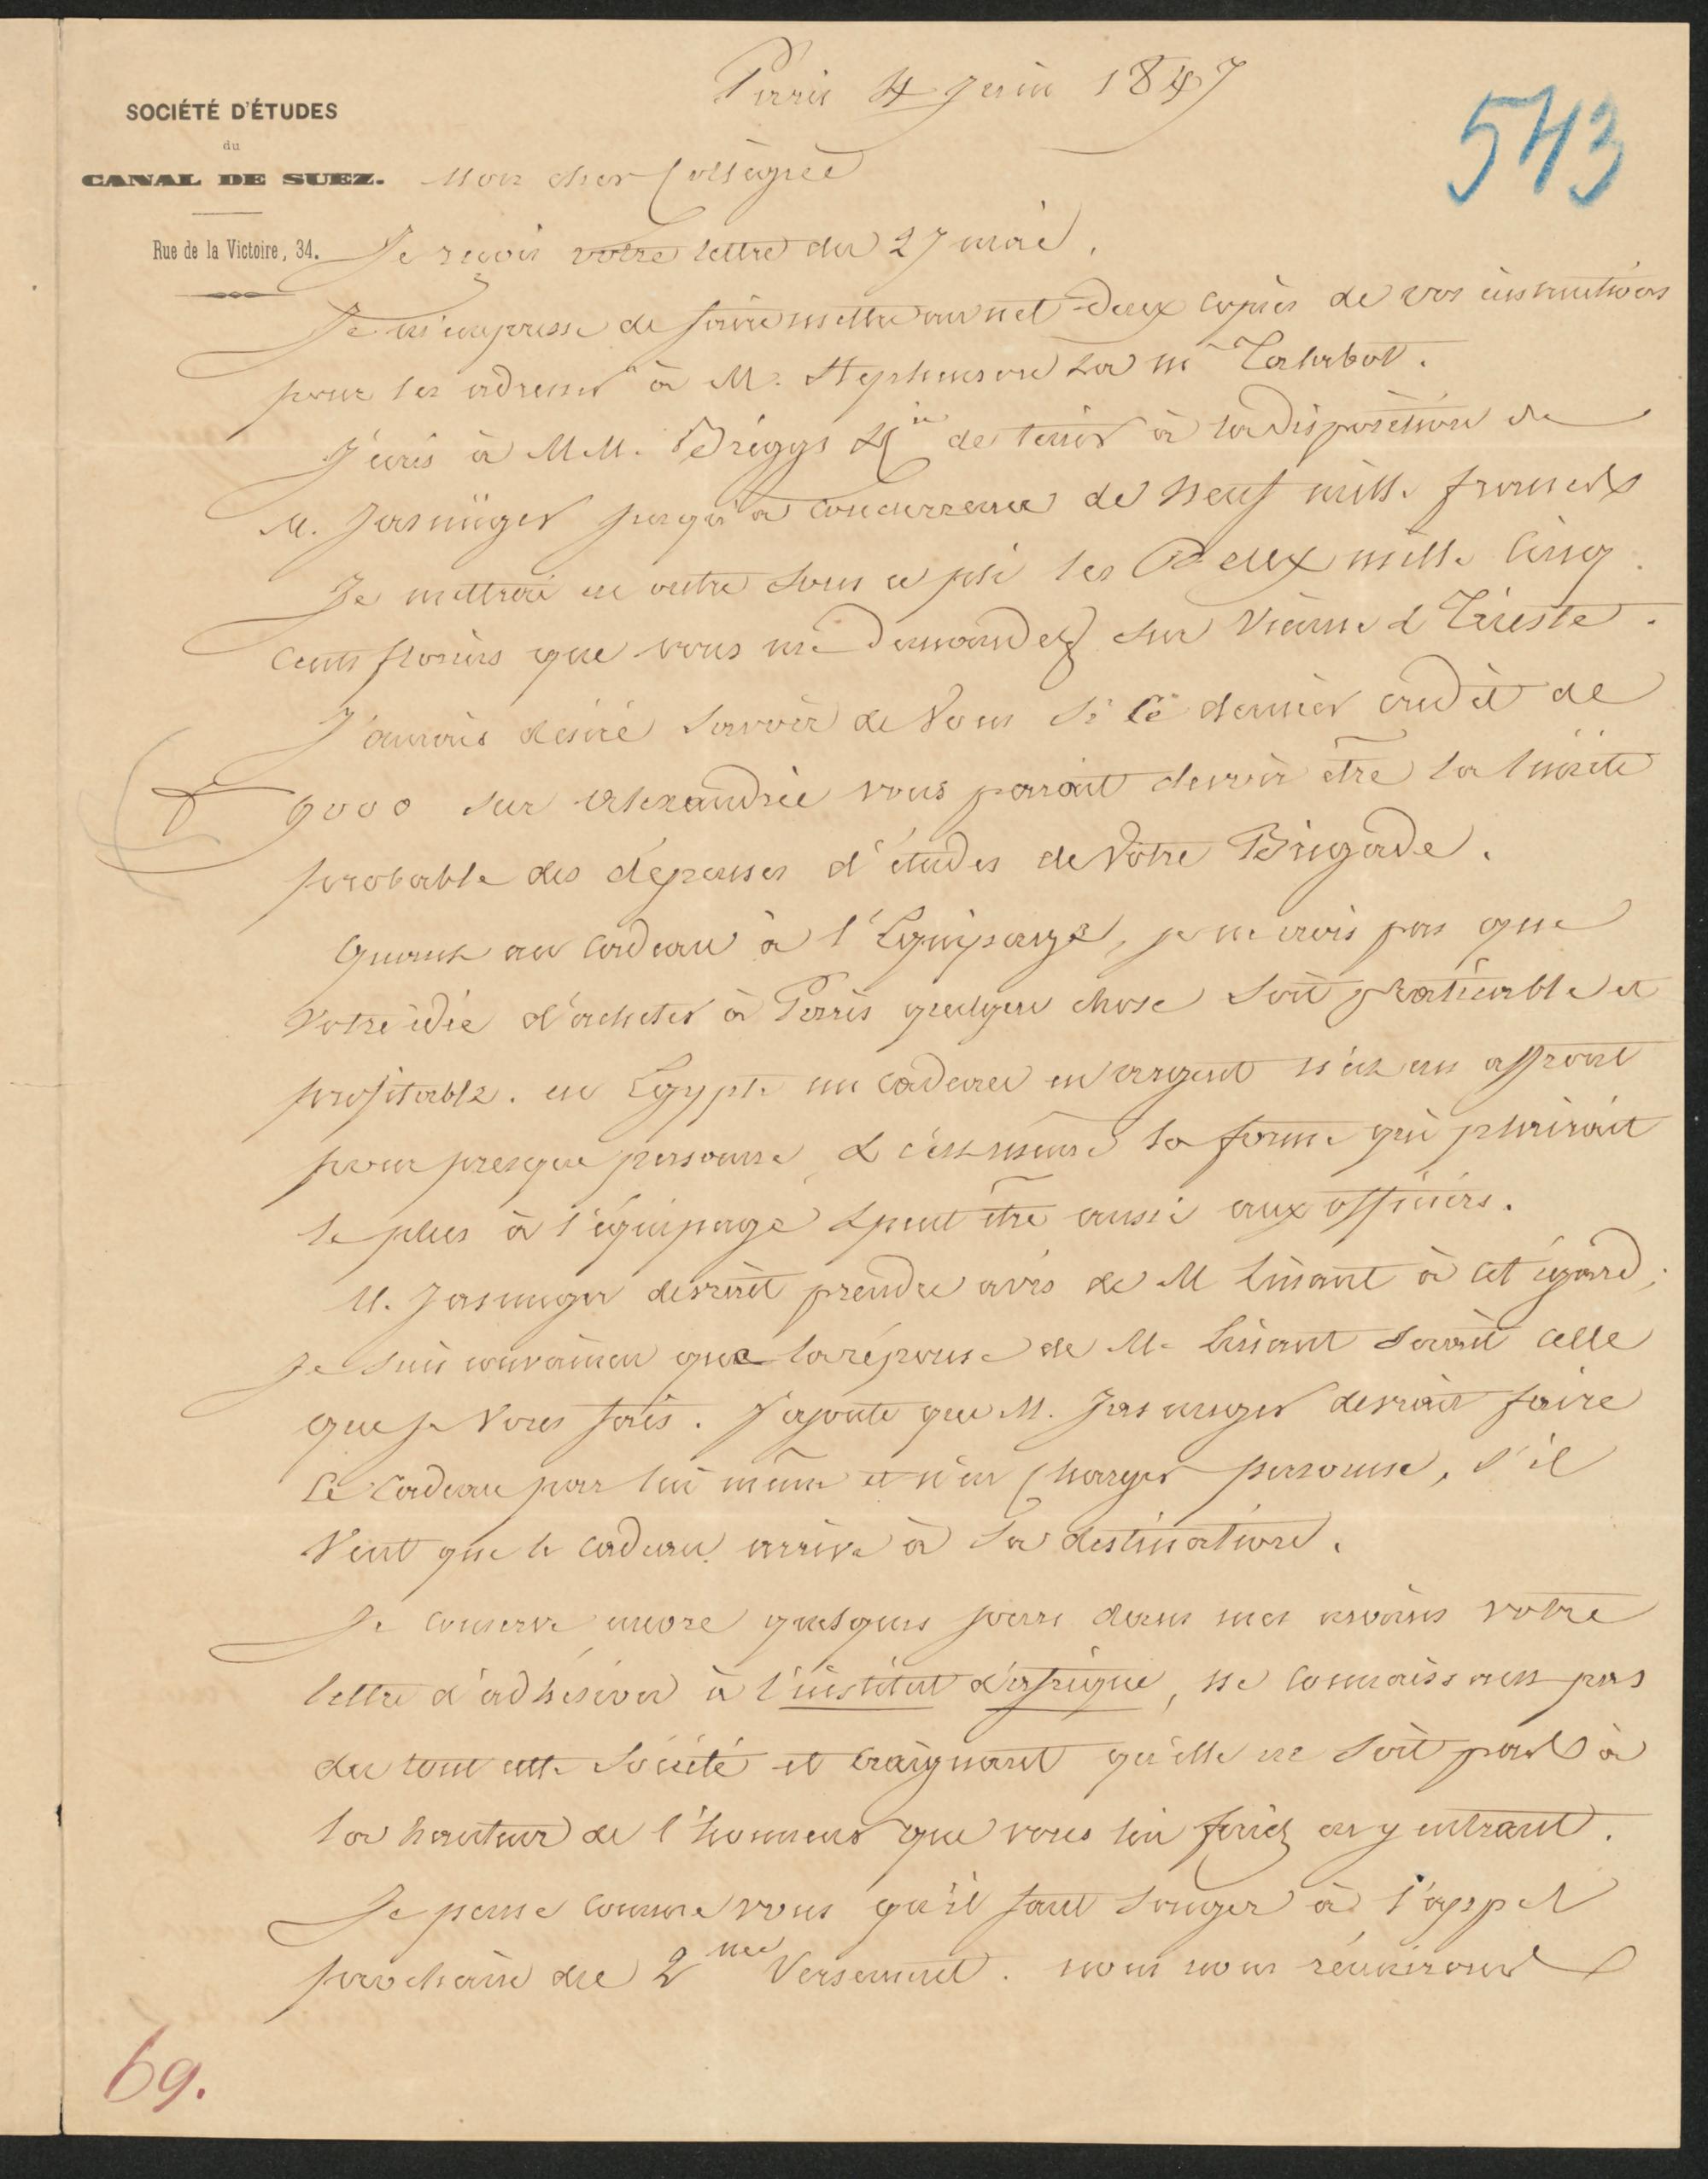 Paris 4 Juin 1847
543
SOCIÉTÉ D'ÉTUDES
du
CANAL DE SUEZ.
Rue de la Victoire, 34.
Mon cher Collègue
Je reçois votre lettre du 27 mai.
Je m'empresse de faire mettre au net deux copies de vos instructions
pour les adresser à M. Stephenson & à Mr Talabot.
J'écris à MM. Briggs & Cie de tenir à la disposition de
M. Jasnüger jusqu'à concurrence de neuf mille francs
Je mettrai en outre sous ce pli les Deux mille Cinq
Cents florins que vous me demandez sur Vienne & Trieste.
J'aurais désiré savoir de Vous si ce dernier crédit de
9000 sur Alexandrie vous parait devoir être la limite
probable des dépenses d'études de Votre Brigade.
Quant au Cadeau à l'Equipage, je ne crois pas que
Votre idée d'acheter à Paris quelque chose soit praticable et
profitable. en Egypte un cadeau en argent n'est un affront
pour presque personne, & c'est même la forme qui plairait
le plus à l'équipage & peut être aussi aux officiers.
M. Jasnuger devrait prendre avis de M Linant à cet égard;
Je suis convaincu que la réponse de M. Linant serait celle
que je Vous fais. J'ajoute que M. Jasnuger devrait faire
Ce Cadeau par lui même et n'en Charger personne, s'il
Veut que le cadeau arrive à sa destination.
Je conserve encore quelques jours dans mes mains votre
lettre d'adhésion à l'institut d'afrique, ne connaissant pas
du tout cette Société et craignant qu'elle ne soit pas à
la hauteur de l'honneur que vous lui feriez en y entrant.
Je pense comme vous qu'il faut songer à l'appel
prochain du 2me Versement. nous nous réunirons
69.